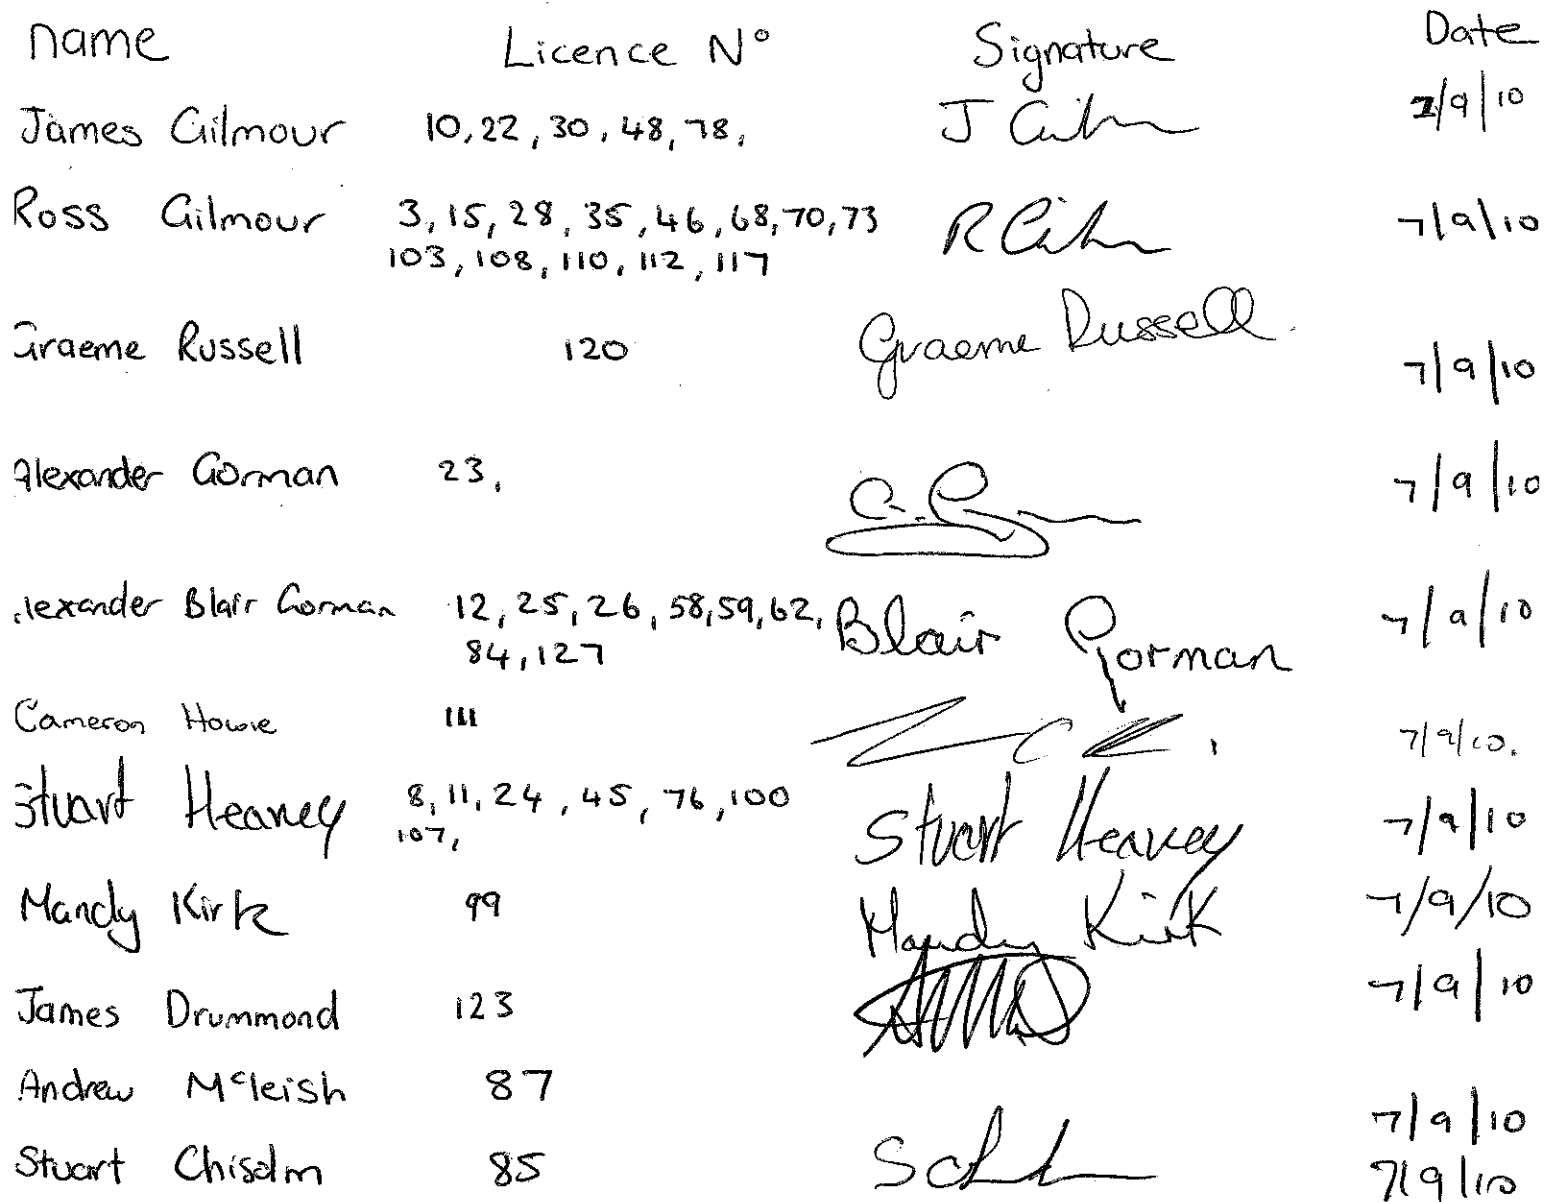 name Licence Nº Signature Date
James Gilmour 10, 22, 30, 48, 78, J 7/9/10
Ross Gilmour 3, 15, 28, 35, 46, 68, 70, 73 R 7/9/10
103, 108, 110, 112, 117
Graeme Russell 120 Graeme Russell 7/9/10
Alexander Gorman 23, 7/9/10
Alexander Blair Gorman 12, 25, 26, 58, 59, 62, Blair Gorman 7/9/10
84, 127
Cameron Howie 111 7/9/10.
Stuart Heaney 8, 11, 24, 45, 76, 100 Stuart Heaney 7/9/10
107,
Mandy Kirk 99 Mandy Kirk 7/9/10
James Drummond 123 7/9/10
Andrew Mcleish 87 7/9/10
Stuart Chisolm 85 7/9/10